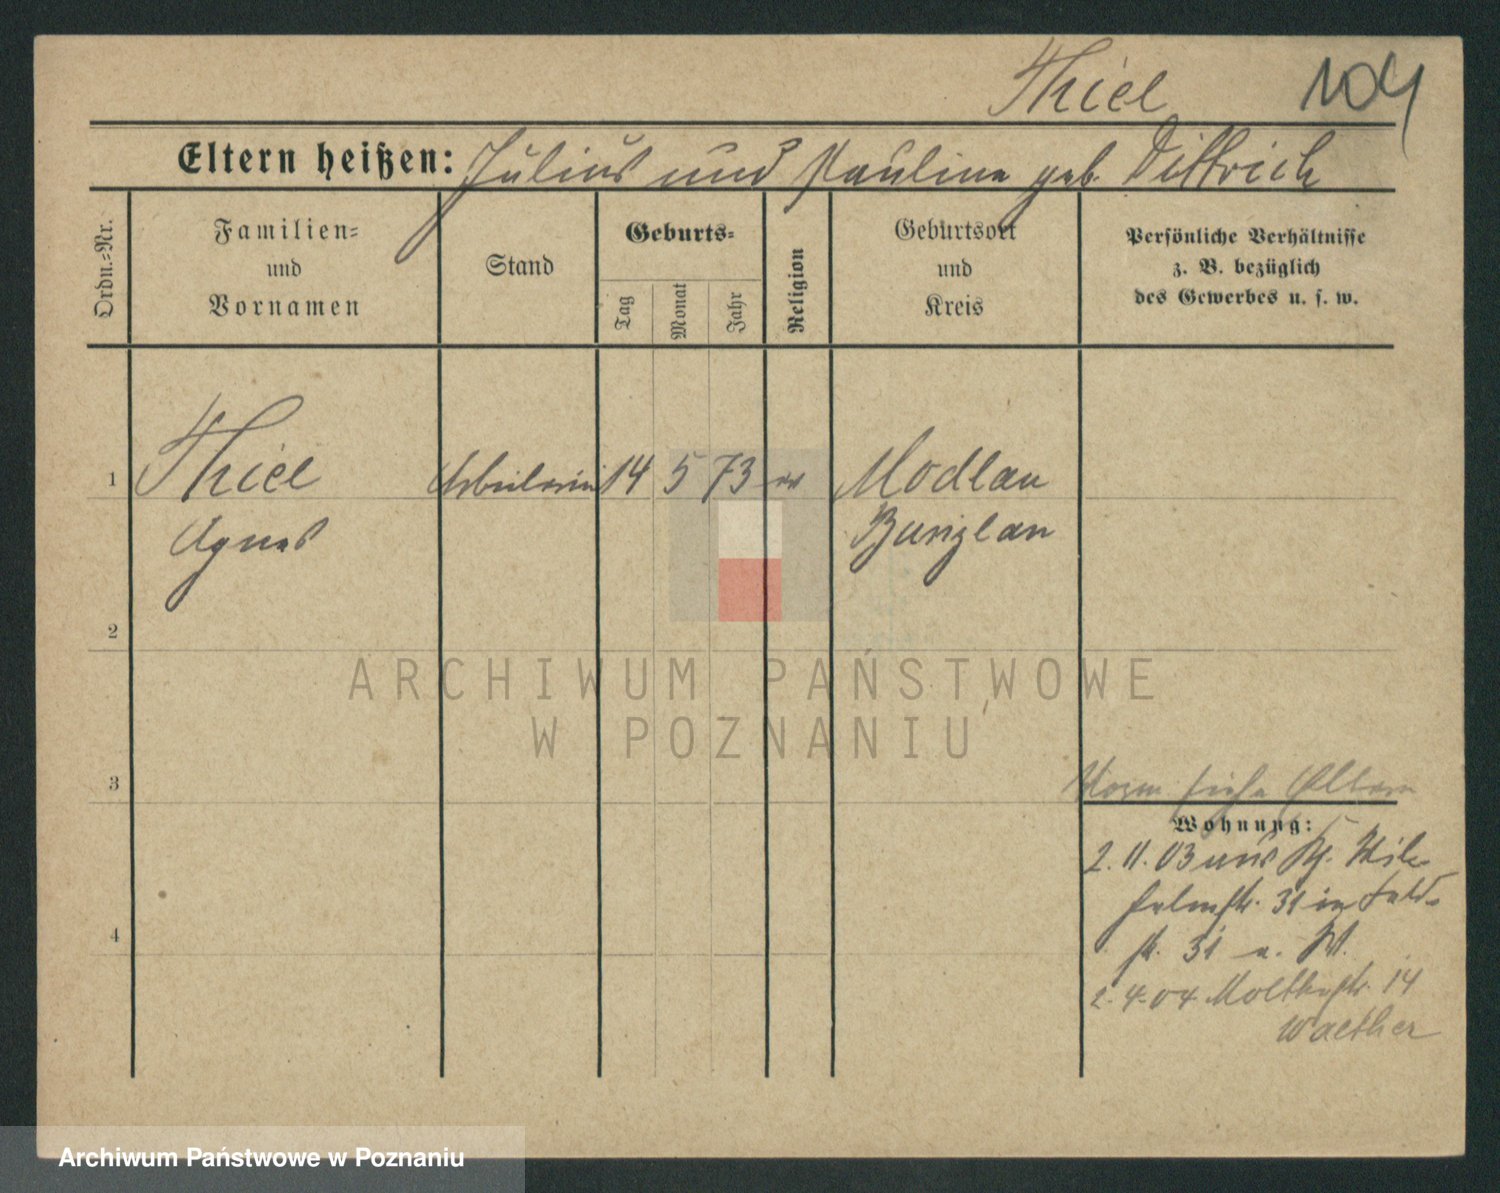 Thiel 104
Eltern heißen: Julius und Pauline geb. Dittrich
Ordn.=Nr.
Familien=
und
Vornamen
Stand
Geburts=
Tag
Monat
Jahr
Religion
Geburtsort
und
Kreis
Persönliche Verhältnisse
z. B. bezüglich
des Gewerbes u. s. w.
1 Thiel Arbeiterin 14 5 73 ev Modlau
Agnes Bunzlau
2
3
4
siehe Eltern
Wohnung:
2.11.03 aus Kl. Wil-
helmstr. 31 in Feld-
str. 31 a. W.
2.4.04 Moltkestr. 14
Walther
ARCHIWUM PAŃSTWOWE
W POZNANIU
Archiwum Państwowe w Poznaniu